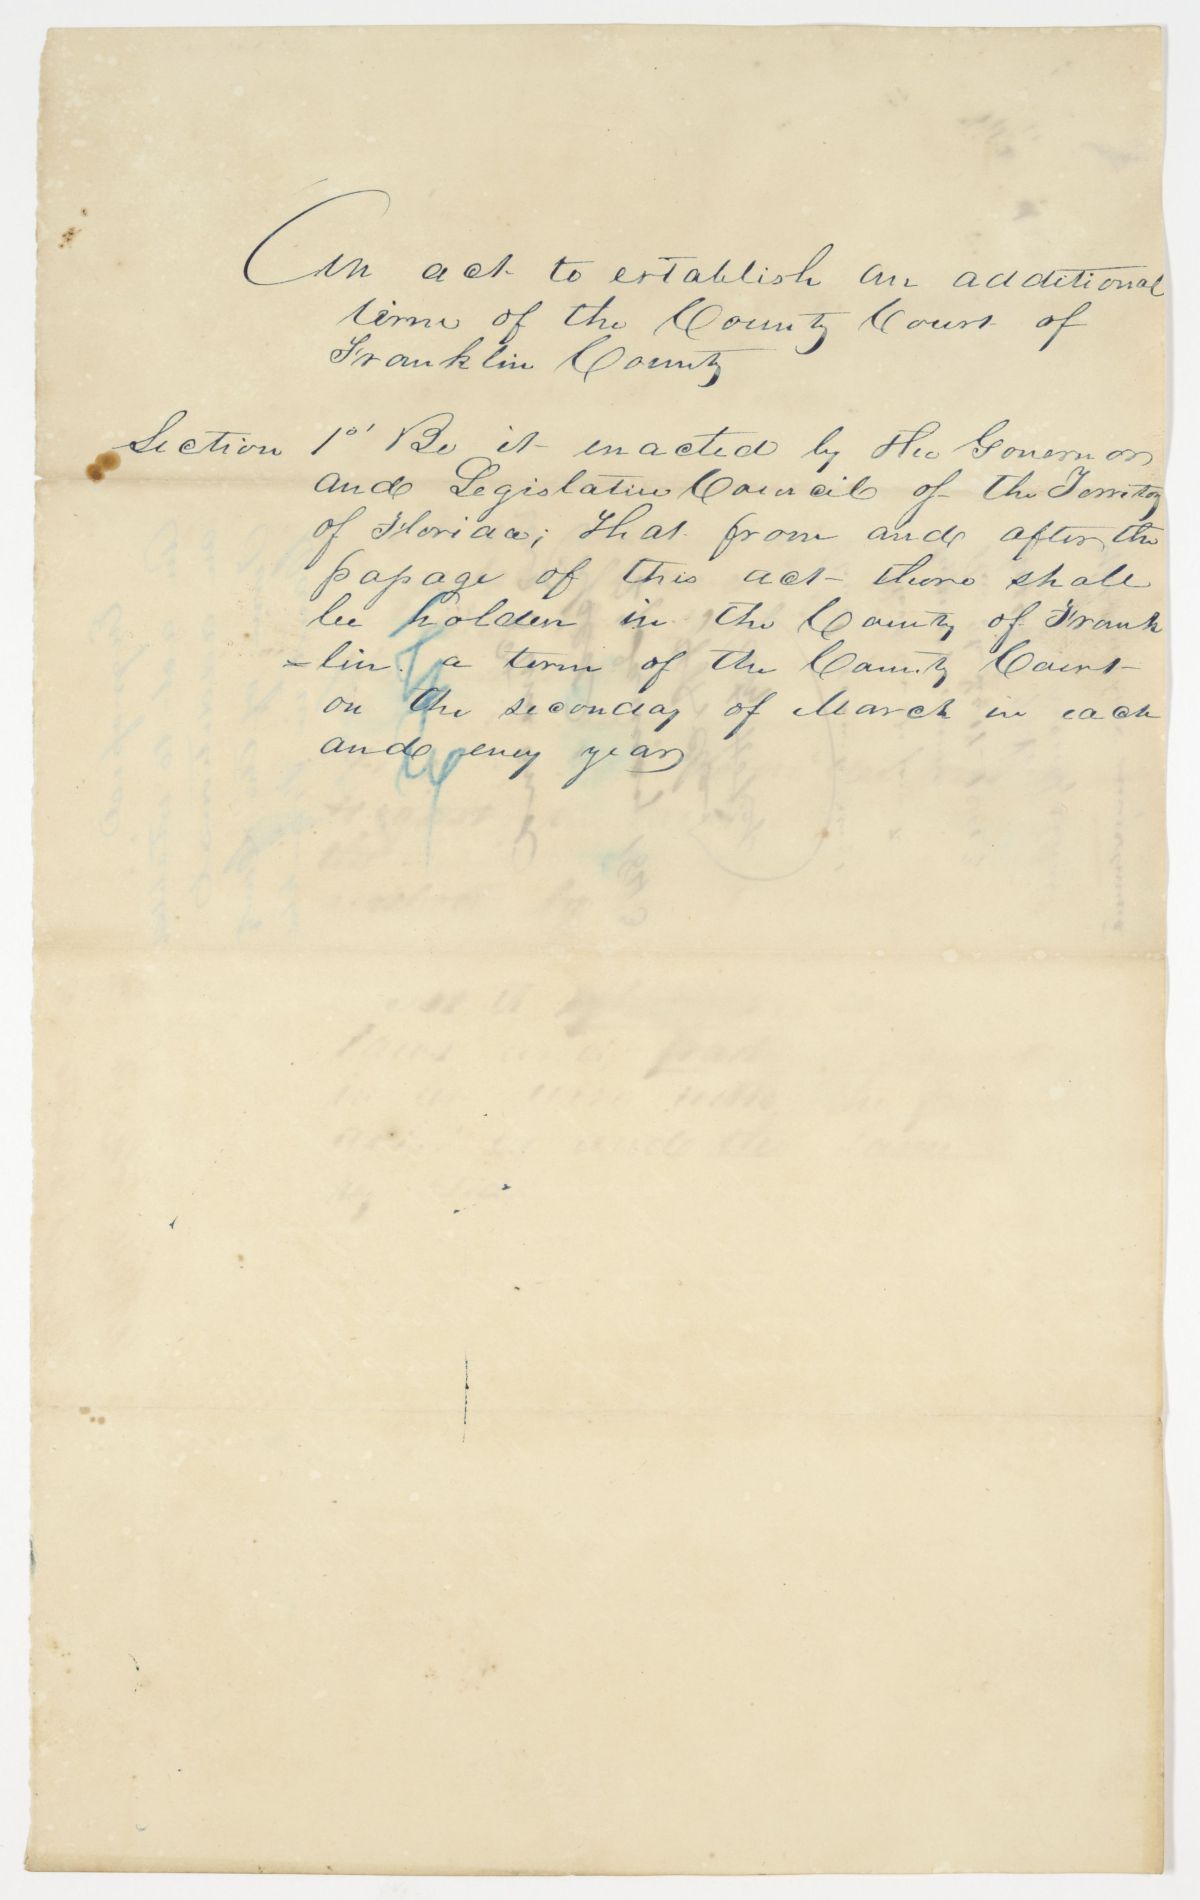 An act to establish an additional
term of the County Court of
Franklin County
Section 1st Be it enacted by the Governor
and Legislative Council of the Territory
of Florida; That from and after the
passage of this act there shall
be holden in the County of Frank
=lin a term of the County Court
on the seconday of March in each
and every year